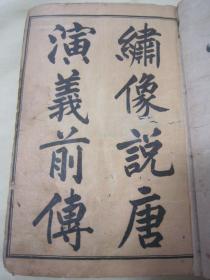 繡像説唐
演義前傳